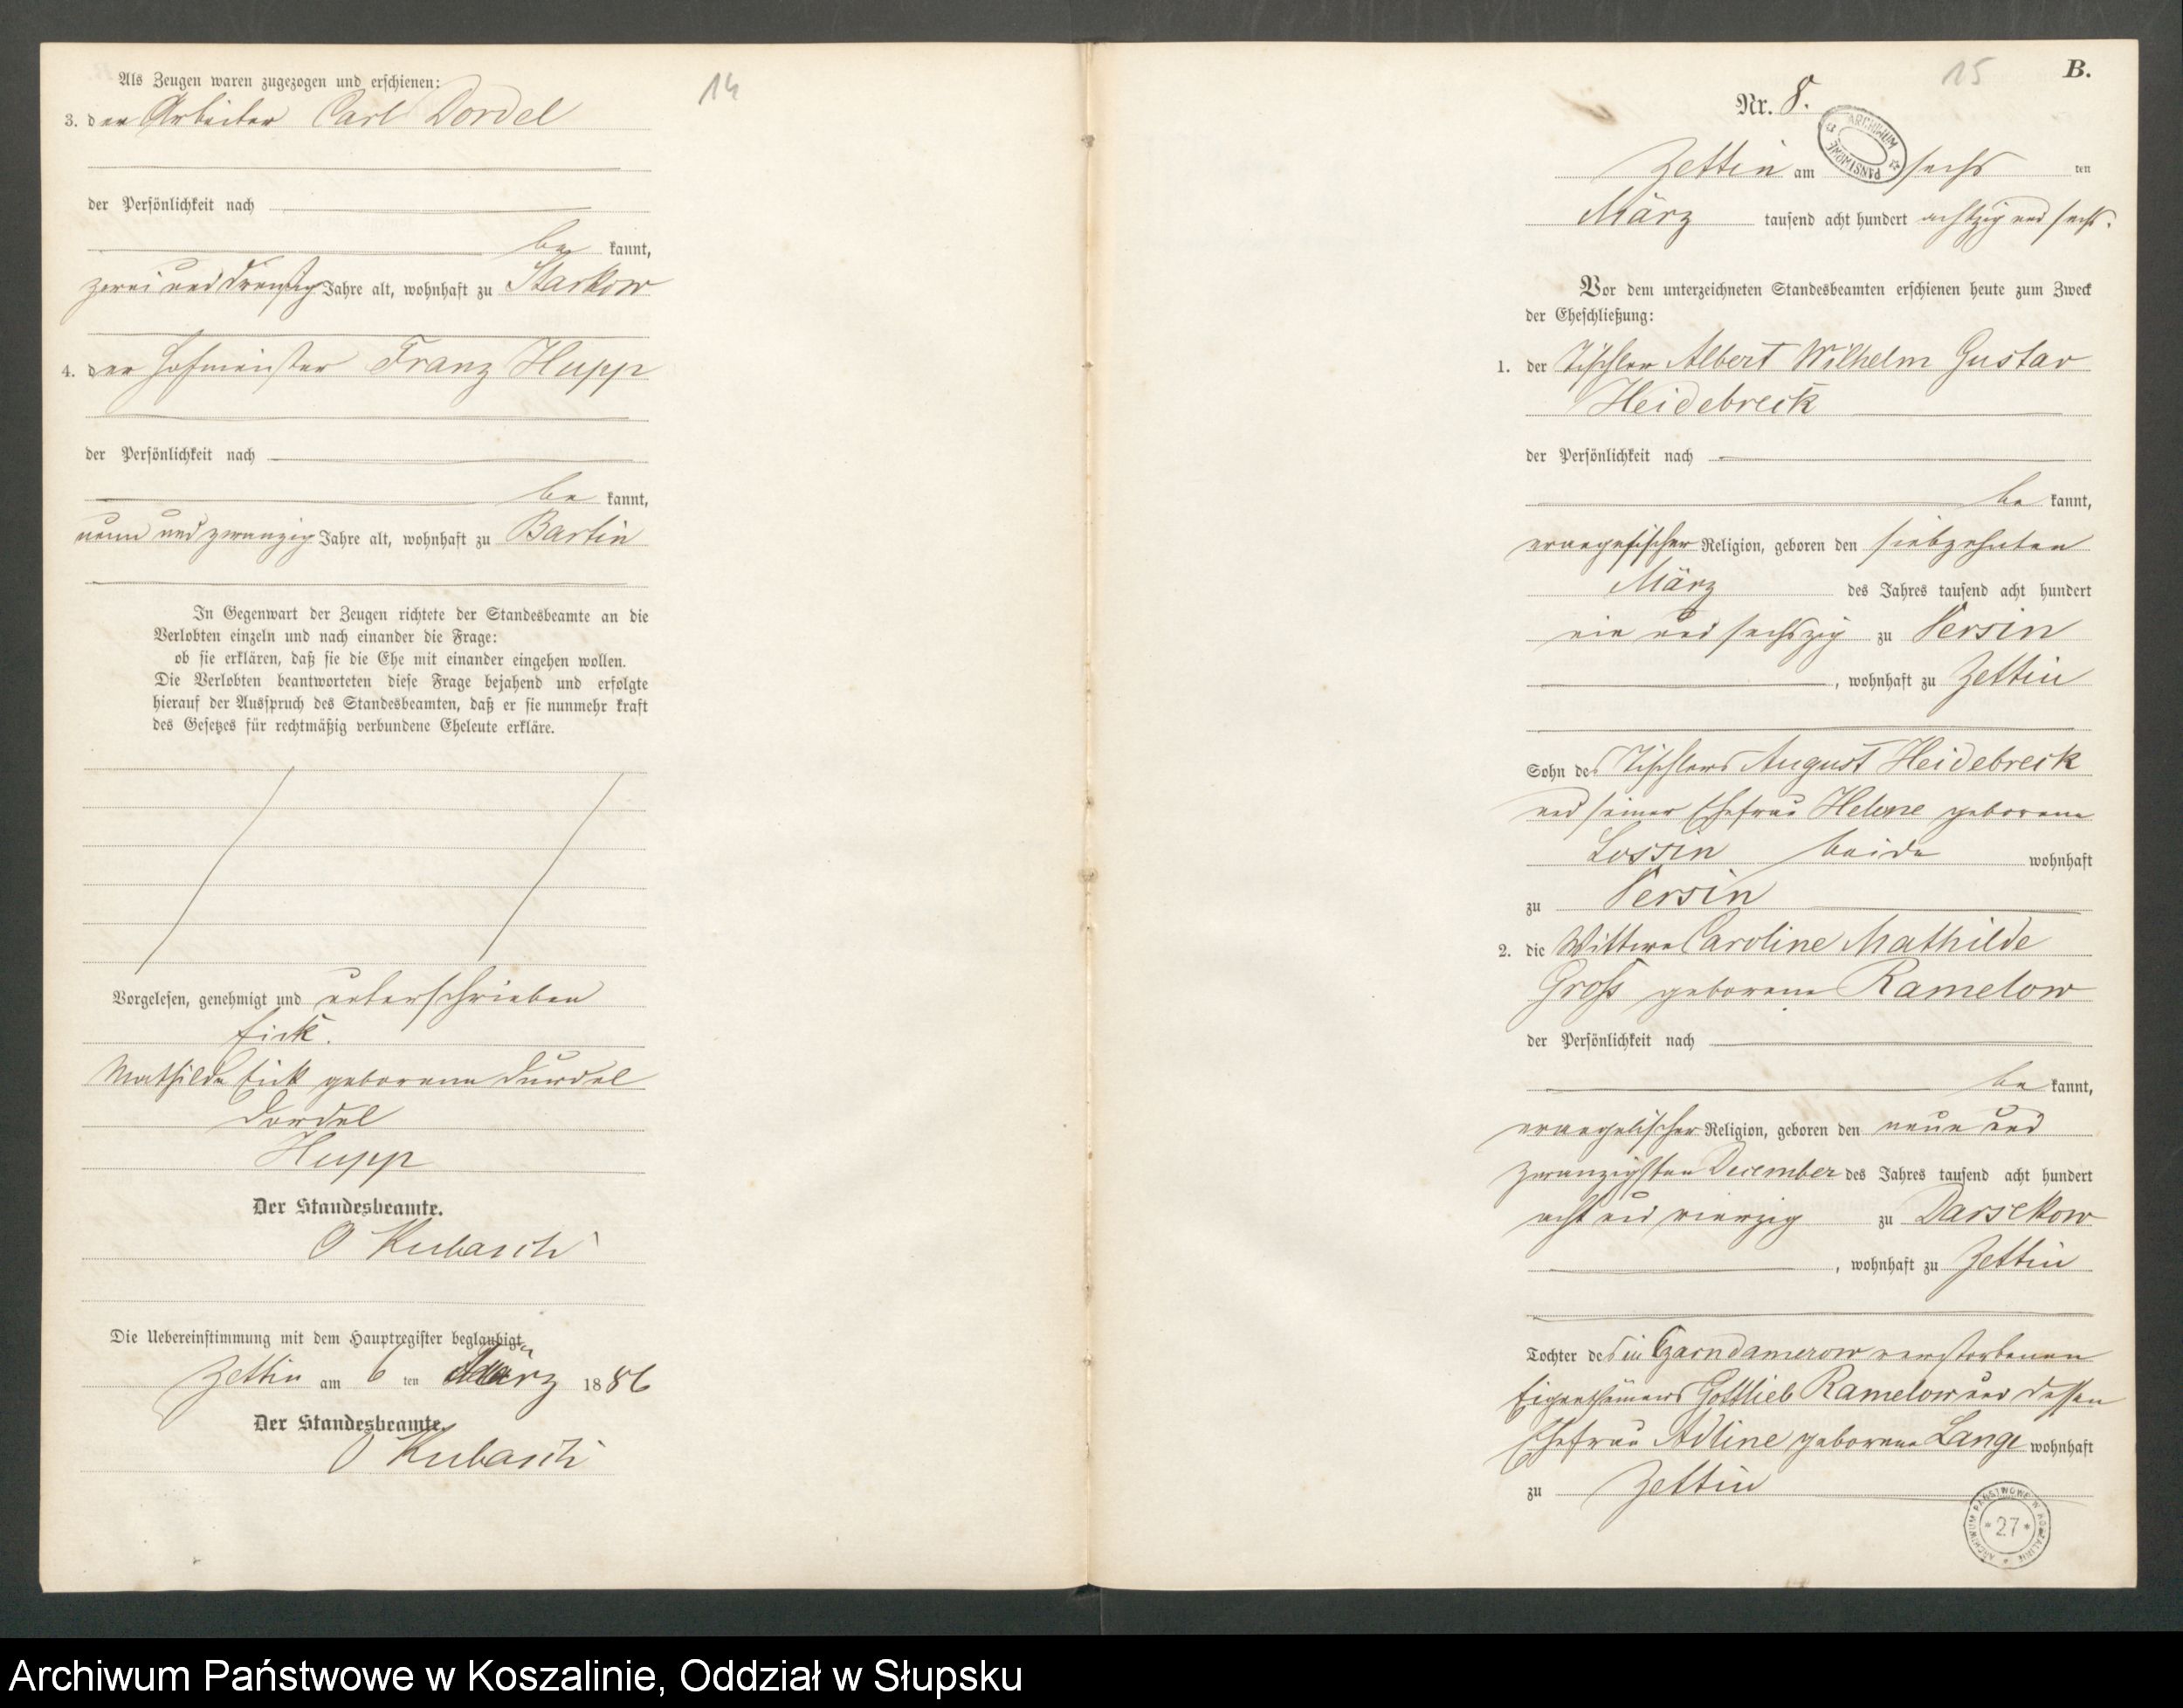 14
Als Zeugen waren zugezogen und erschienen:
3. der Arbeiter Carl Dordel
der Persönlichkeit nach
be kannt,
zwei und dreißig Jahre alt, wohnhaft zu Starkow
4. der Hofmeister Franz Hupp
der Persönlichkeit nach
be kannt,
neun und zwanzig Jahre alt, wohnhaft zu Bartin
In Gegenwart der Zeugen richtete der Standesbeamte an die
Verlobten einzeln und nach einander die Frage:
ob sie erklären, daß sie die Ehe mit einander eingehen wollen.
Die Verlobten beantworteten diese Frage bejahend und erfolgte
hierauf der Ausspruch des Standesbeamten, daß er sie nunmehr kraft
des Gesetzes für rechtmäßig verbundene Eheleute erkläre.
Vorgelesen, genehmigt und unterschrieben
Fick.
Mathilde Fick geborene Durdel
Dordel
Hupp
Der Standesbeamte.
O Kubasch
Die Uebereinstimmung mit dem Hauptregister beglaubigt
Zettin am 6 ten März 1886
Der Standesbeamte.
O Kubasch
15
B.
Nr. 8.
ARCHIWUM PAŃSTWOWE
Zettin am sechs ten
März tausend acht hundert achtzig und sechs.
Vor dem unterzeichneten Standesbeamten erschienen heute zum Zweck
der Eheschließung:
1. der Tischler Albert Wilhelm Gustav
Heidebreck
der Persönlichkeit nach
be kannt,
evangelischer Religion, geboren den siebzehnten
März des Jahres tausend acht hundert
ein und sechszig zu Versin
, wohnhaft zu Zettin
Sohn des Tischlers August Heidebreck
und seiner Ehefrau Helene geborene
Lossin beide wohnhaft
zu Versin
2. die Wittwe Caroline Mathilde
Groß geborene Ramelow
der Persönlichkeit nach
be kannt,
evangelischer Religion, geboren den neun und
zwanzigsten December des Jahres tausend acht hundert
acht und vierzig zu Darsekow
, wohnhaft zu Zettin
Tochter des in Czarndamerow verstorbenen
Eigenthümers Gottlieb Ramelow und dessen
Ehefrau Adline geborene Lange wohnhaft
zu Zettin
ARCHIWUM PAŃSTWOWE W KOSZALINIE
* 27 *
Archiwum Państwowe w Koszalinie, Oddział w Słupsku